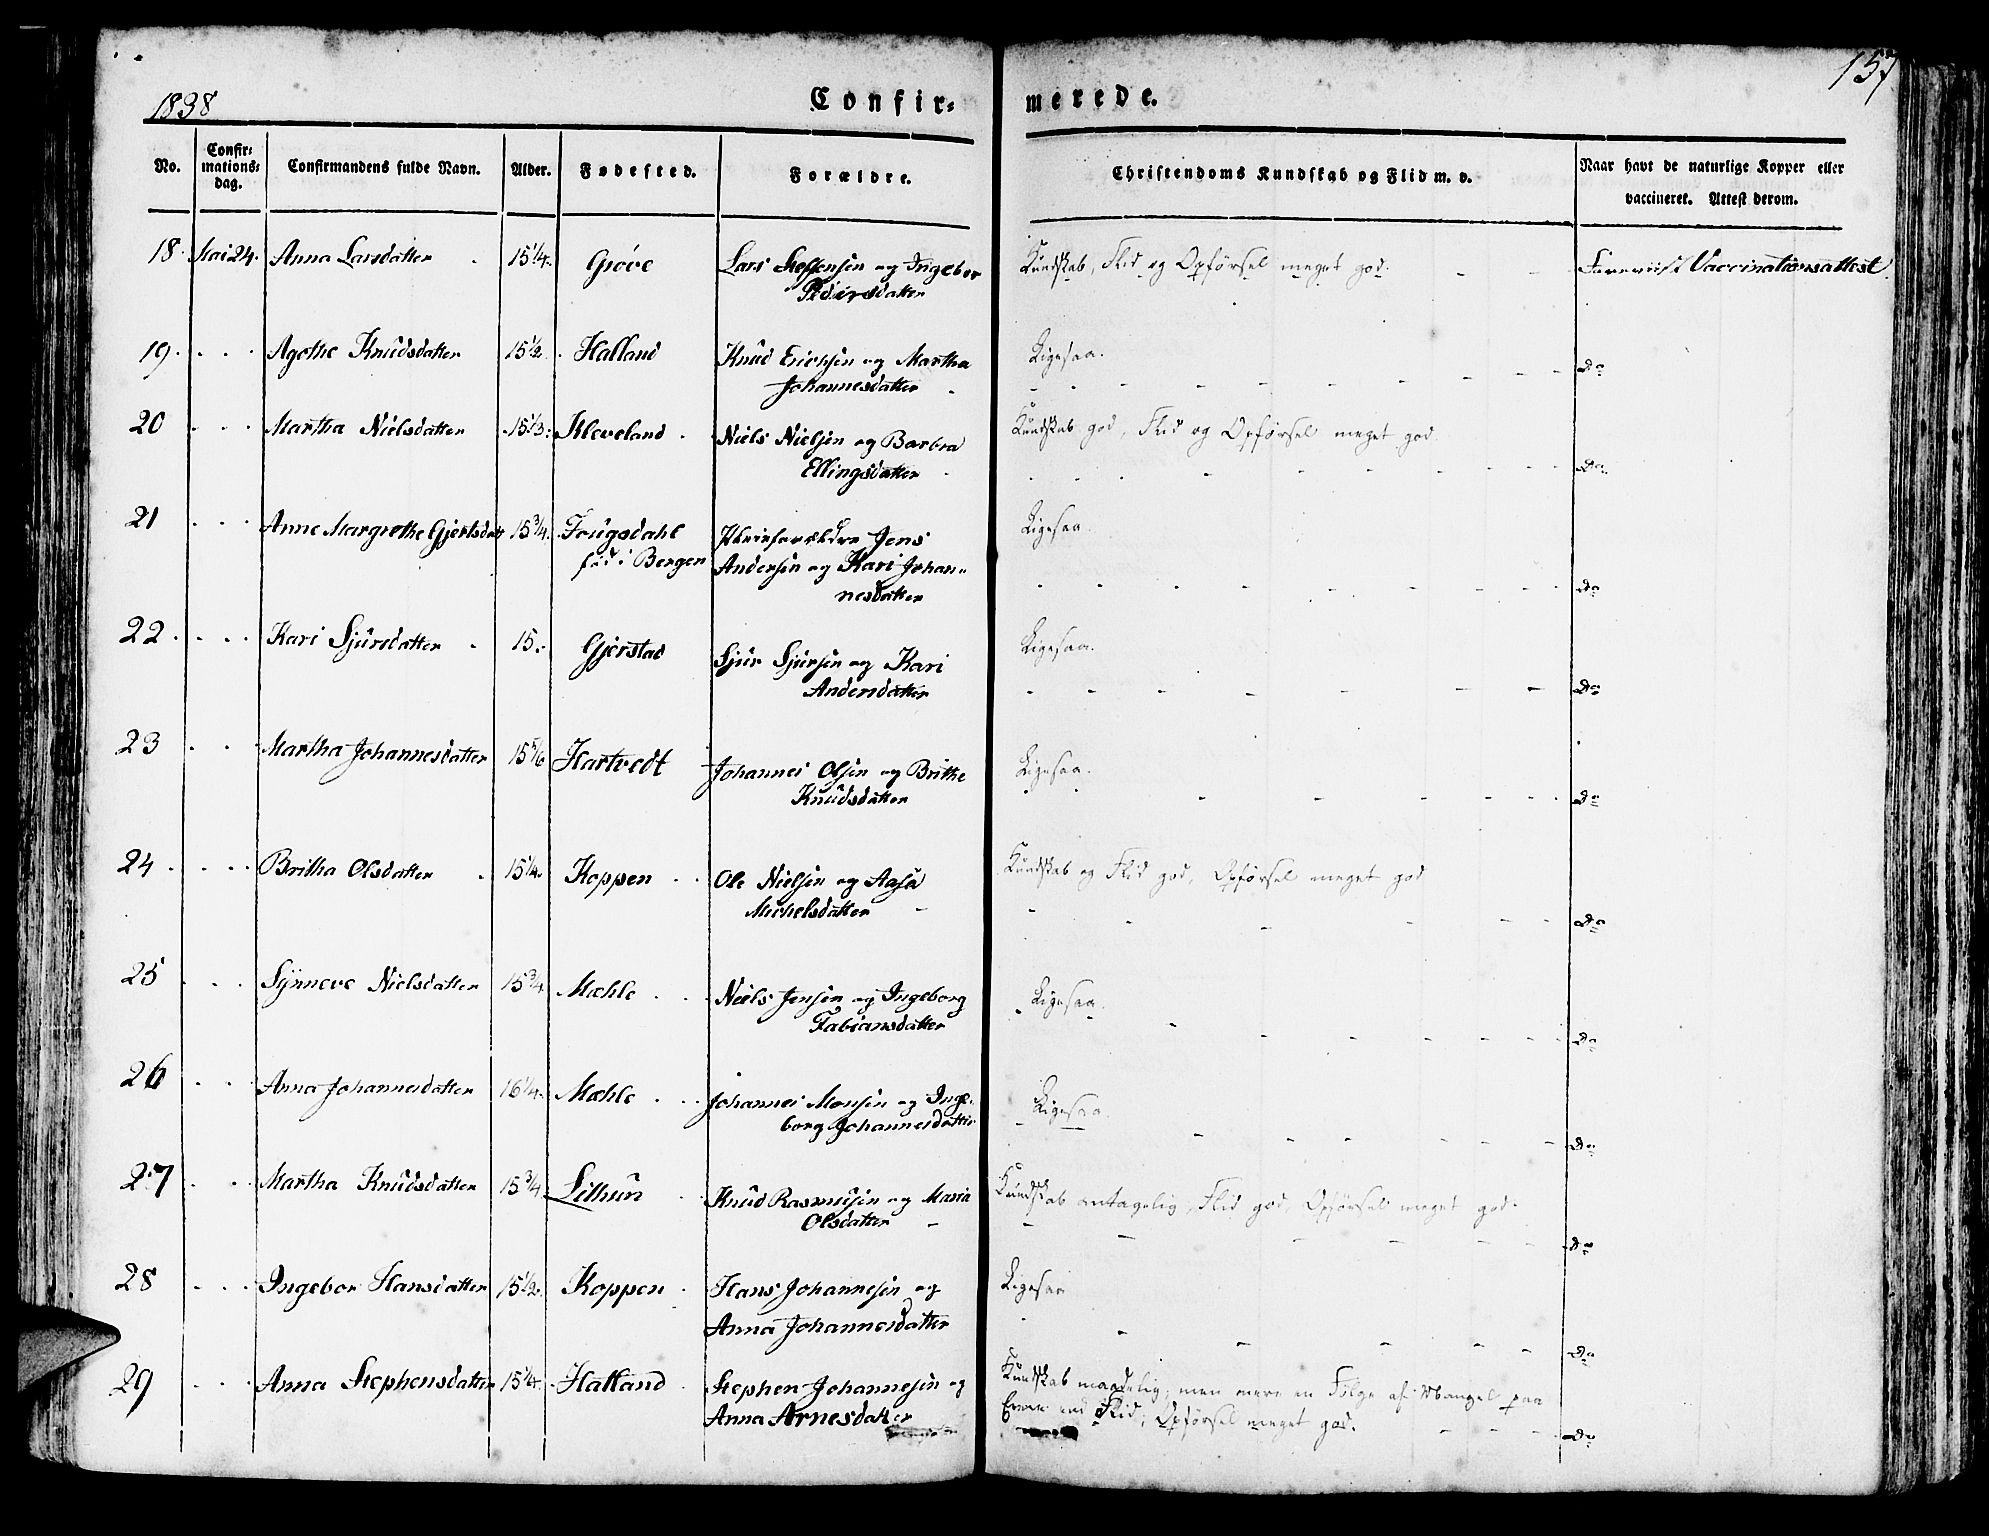 157
1838 Confir= merede.
No. Confir=mations=dag. Confirmandens fulde Navn. Alder. Fødested. Forældre. Christendoms Kundskab og Flid m. v. Naar havt de naturlige Kopper eller vaccineret. Attest derom.
18 Mai 24. Anna Larsdatter 15 1/4. Grøve Lars Steffensen og Ingebor Kundskab, Flid og Opførsel meget god. Foreviist Vaccinationsattest.
Pedersdatter
19. Agethe Knudsdatter 15 1/2. Halland Knud Erichsen og Martha Ligesaa. Do
Johannesdatter
20 Martha Nielsdatter 15 1/3. Kleveland Niels Nielsen og Barbra Kundskab god, Flid og Opførsel meget god.
Ellingsdatter Do
21 Anne Margrethe Gjertsdatt 15 3/4. Fougsdahl Pleieforældre Jens Ligesaa.
fød i Bergen Andersen og Kari Johan=
nesdatter Do
22. Kari Sjursdatter 15. Gjerstad Sjur Sjursen og Kari Ligesaa.
Andersdatter Do
23 Martha Johannesdatter 15 5/6 Hartvedt Johannes Olsen og Brithe Ligesaa.
Knudsdatter Do
24 Britha Olsdatter 15 1/4. Koppen Ole Nielsen og Aasa Kundskab og Flid god, Opførsel meget god
Michelsdatter Do
25 Synneve Nielsdatter 15 3/4. Mæhle Niels Jensen og Ingeborg Ligesaa.
Fabiansdatter Do
26 Anna Johannesdatter 16 1/4. Mæhle Johannes Monsen og Inge= Ligesaa.
borg Johannesdatter Do
27 Martha Knudsdatter 15 3/4 Lilhun Knud Rasmusen og Maria Kundskab antagelig, Flid god, Opførsel meget god.
Olsdatter Do
28 Ingebor Hansdatter 15 1/2. Koppen Hans Johannesen og Ligesaa
Anna Johannesdatter Do
29 Anna Stephensdatter 15 1/4. Halland Stephen Johannesen og Kundskab maadelig, men mere en Følge af Mangel paa
Anna Arnesdatter Evne end Flid; Opførsel meget god. Do